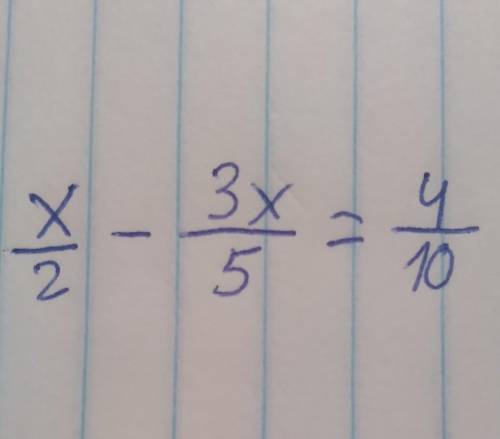 x/2 - 3x/5 = 4/10